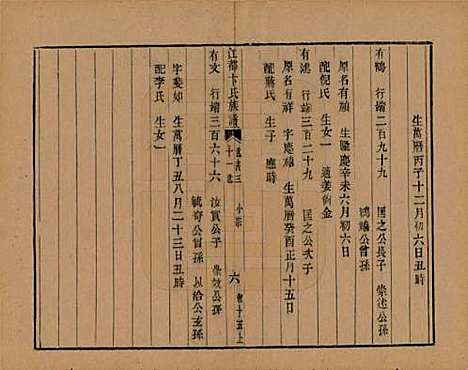 生萬曆丙子十二月初六日丑時
有鶴 行端二百九十九 匡之公長子 崇述公孫
鴻漸公曾孫
原名有願 生隆慶辛未六月初六日
配倪氏 生女一 適姜例金
有鴻 行端三百二十九 匡之公次子
原名有祥 字應禎 生萬曆癸酉正月十五日
配蔣氏 生子 應時
江都卞氏族譜 十一世 小宗 六
有文 行端三百六十六 汝賓公子 崇效公孫
毓奇公曾孫 以洽公玄孫
字斐如 生萬曆丁丑八月二十三日丑時
配李氏 生女一